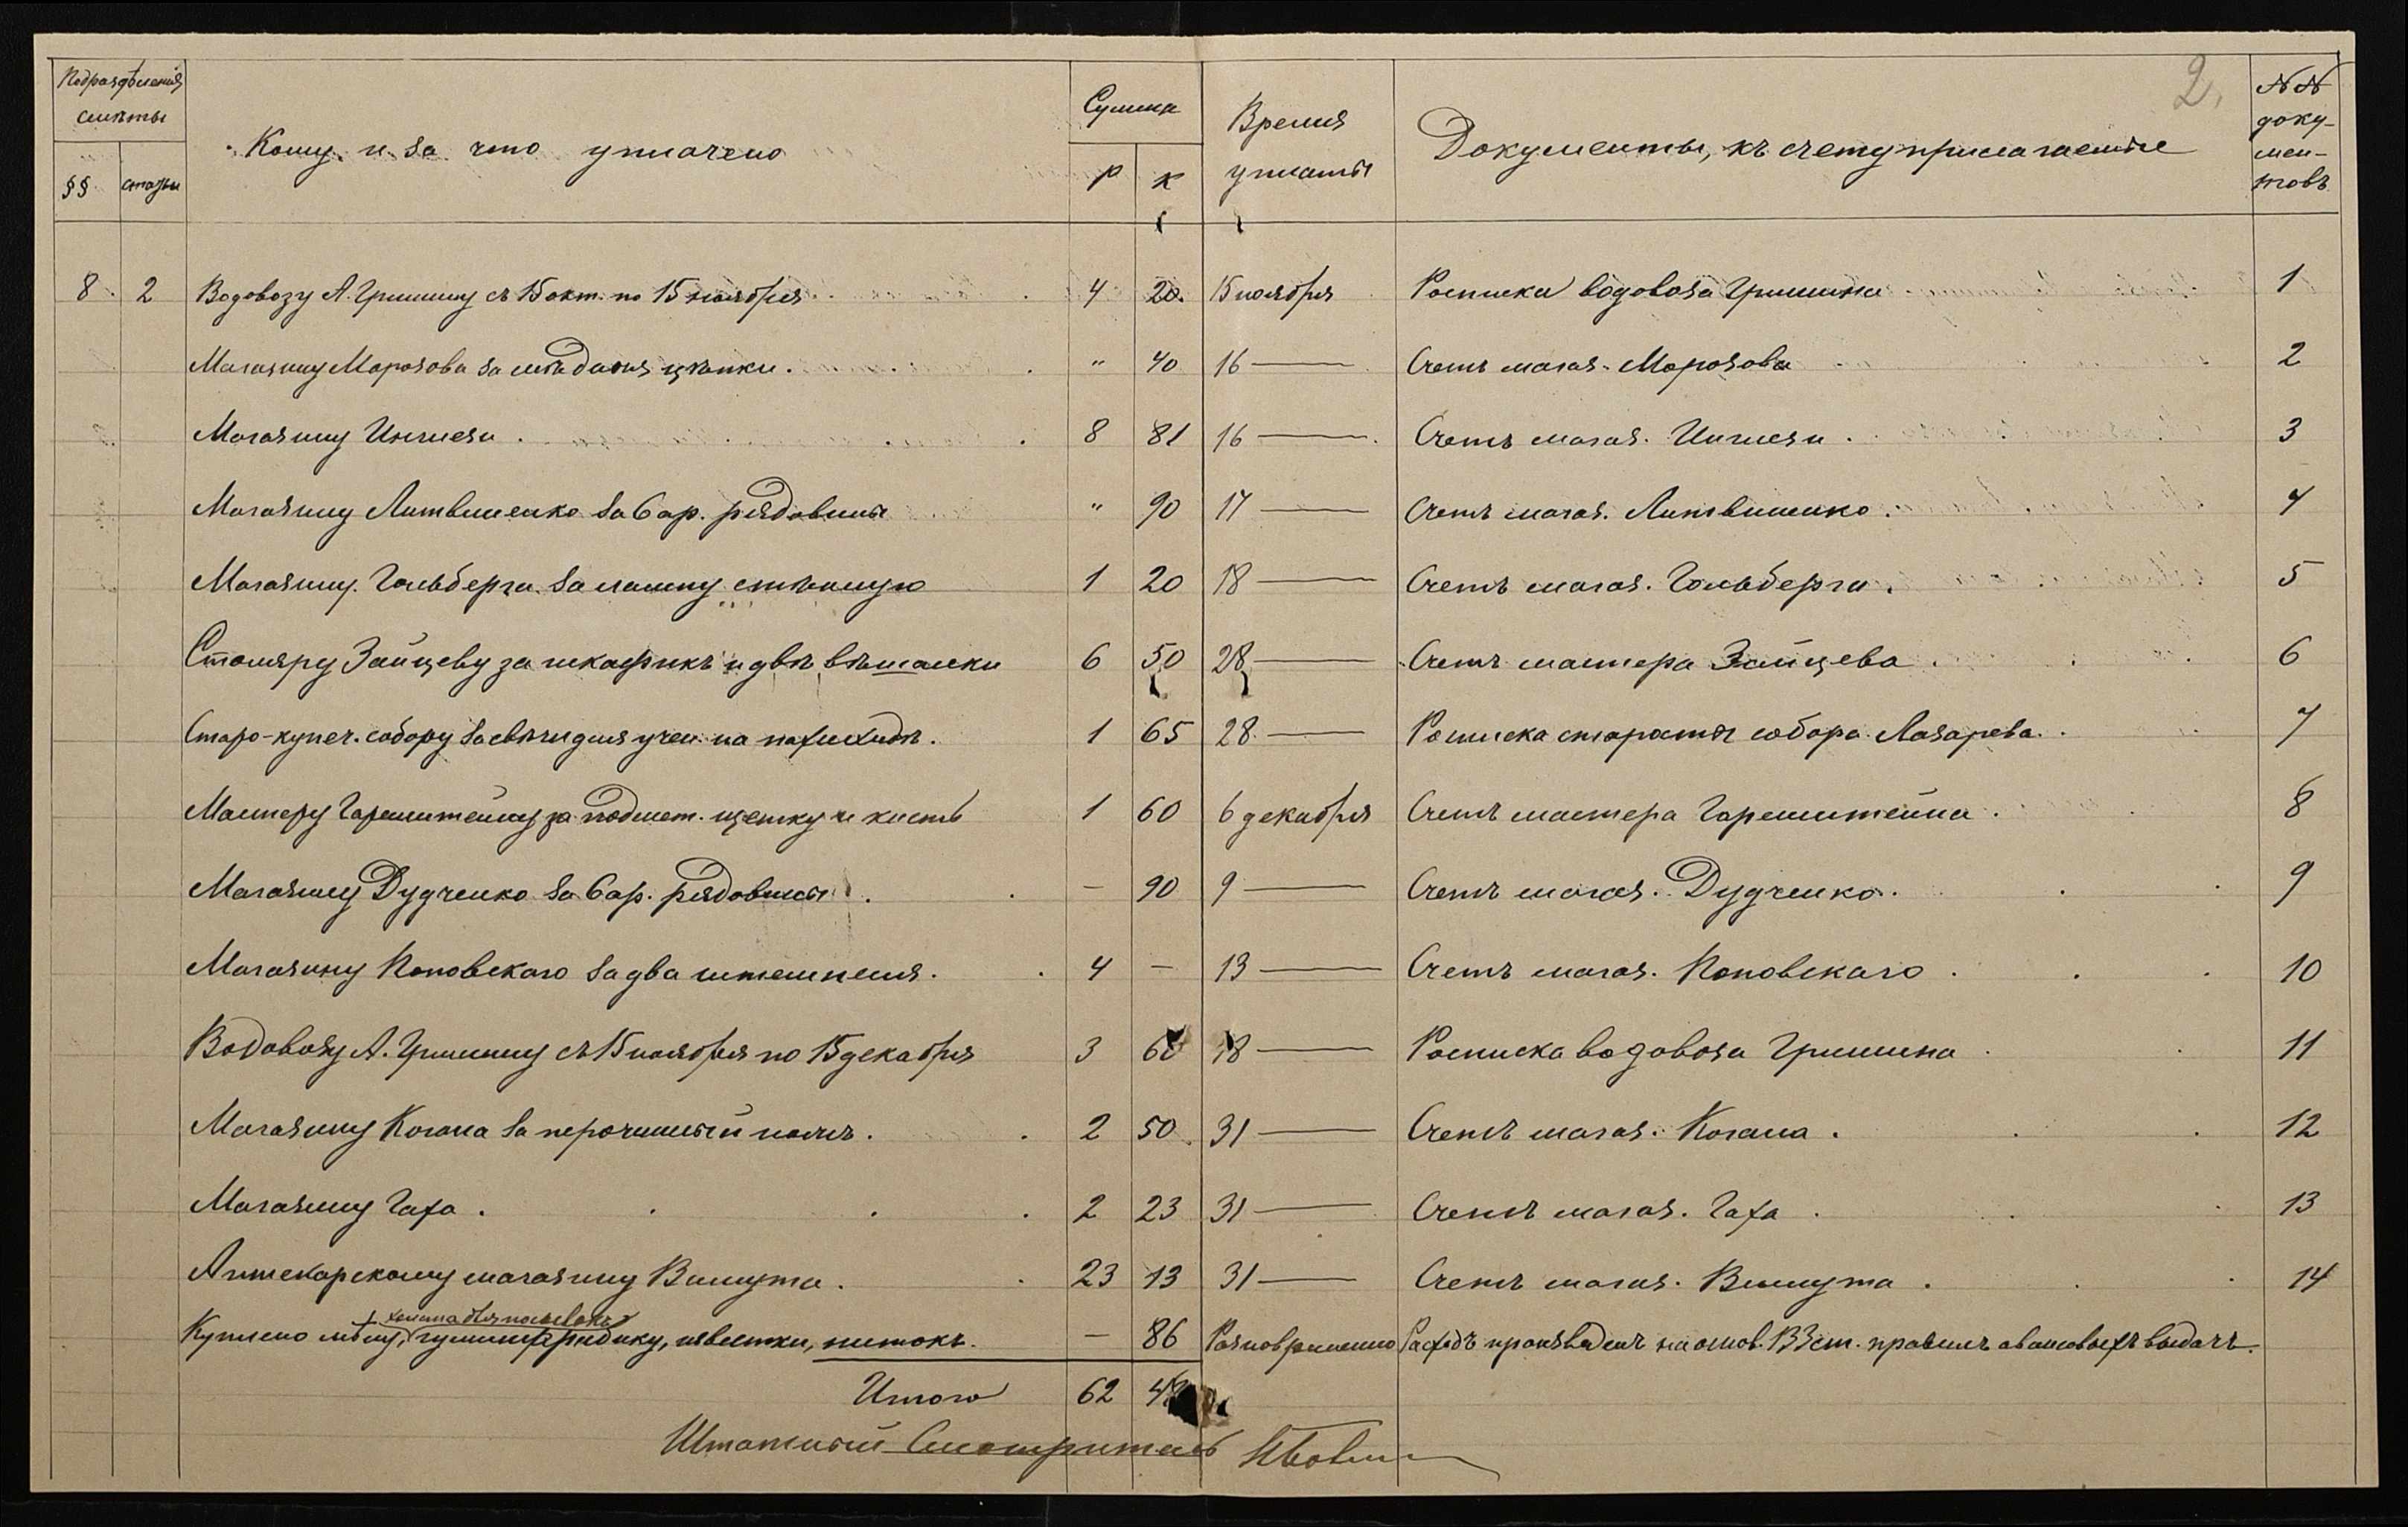 2.
Подраздѣленія смѣты
§§ статьи
Кому и за что уплачено
Сумма
р к
Время уплаты
Документы, къ счету прилагаемые
№№ документовъ
8 2 Водовозу А. Гришину съ 15 окт. по 15 ноября 4 20 15 ноября Росписка водовоза Гришина 1
Магазину Морозова за цѣпки " 40 16 — Счетъ магаз. Морозова 2
Магазину Ингмези 8 81 16 — Счетъ магаз. Ингмези 3
Магазину Литвиненко за 6 ар. рядовины " 90 17 — Счетъ магаз. Литвиненко 4
Магазину Гольберга за лампу стѣнную 1 20 18 — Счетъ магаз. Гольберга 5
Столяру Зайцеву за шкафикъ и двѣ вѣшалки 6 50 28 — Счетъ мастера Зайцева 6
Старо-купеч. собору за свѣчи для учен. на панихидѣ 1 65 28 — Росписка старосты собора Лазарева 7
Мастеру Гаренштейну за подмет. щетку и кисть 1 60 6 декабря Счетъ мастера Гаренштейна 8
Магазину Дудченко за 6 ар. рядовины — 90 9 — Счетъ магаз. Дудченко 9
Магазину Поповскаго за два штемпеля 4 — 13 — Счетъ магаз. Поповскаго 10
Водовозу А. Гришину съ 15 ноября по 15 декабря 3 60 18 — Росписка водовоза Гришина 11
Магазину Когана за перочинный ножъ 2 50 31 — Счетъ магаз. Когана 12
Магазину Гаха 2 23 31 — Счетъ магаз. Гаха 13
Аптекарскому магазину Вилута 23 13 31 — Счетъ магаз. Вилута 14
Куплено мѣлу, гуммиарабику, известки, нитокъ — 86 Разновременно Расходъ произведенъ на основ. ВЗ ст. правилъ авансовыхъ выдачъ.
Итого 62 48
Штатный Смотритель